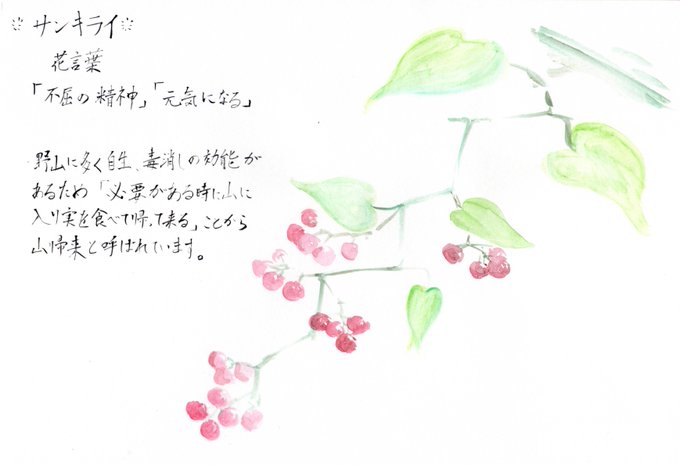 ※サンキライ※
花言葉
「不屈の精神」「元気になる」
野山に多く自生、毒消しの効能が
あるため「必要がある時に山に
入り実を食べて帰って来る」ことから
山帰来と呼ばれています。